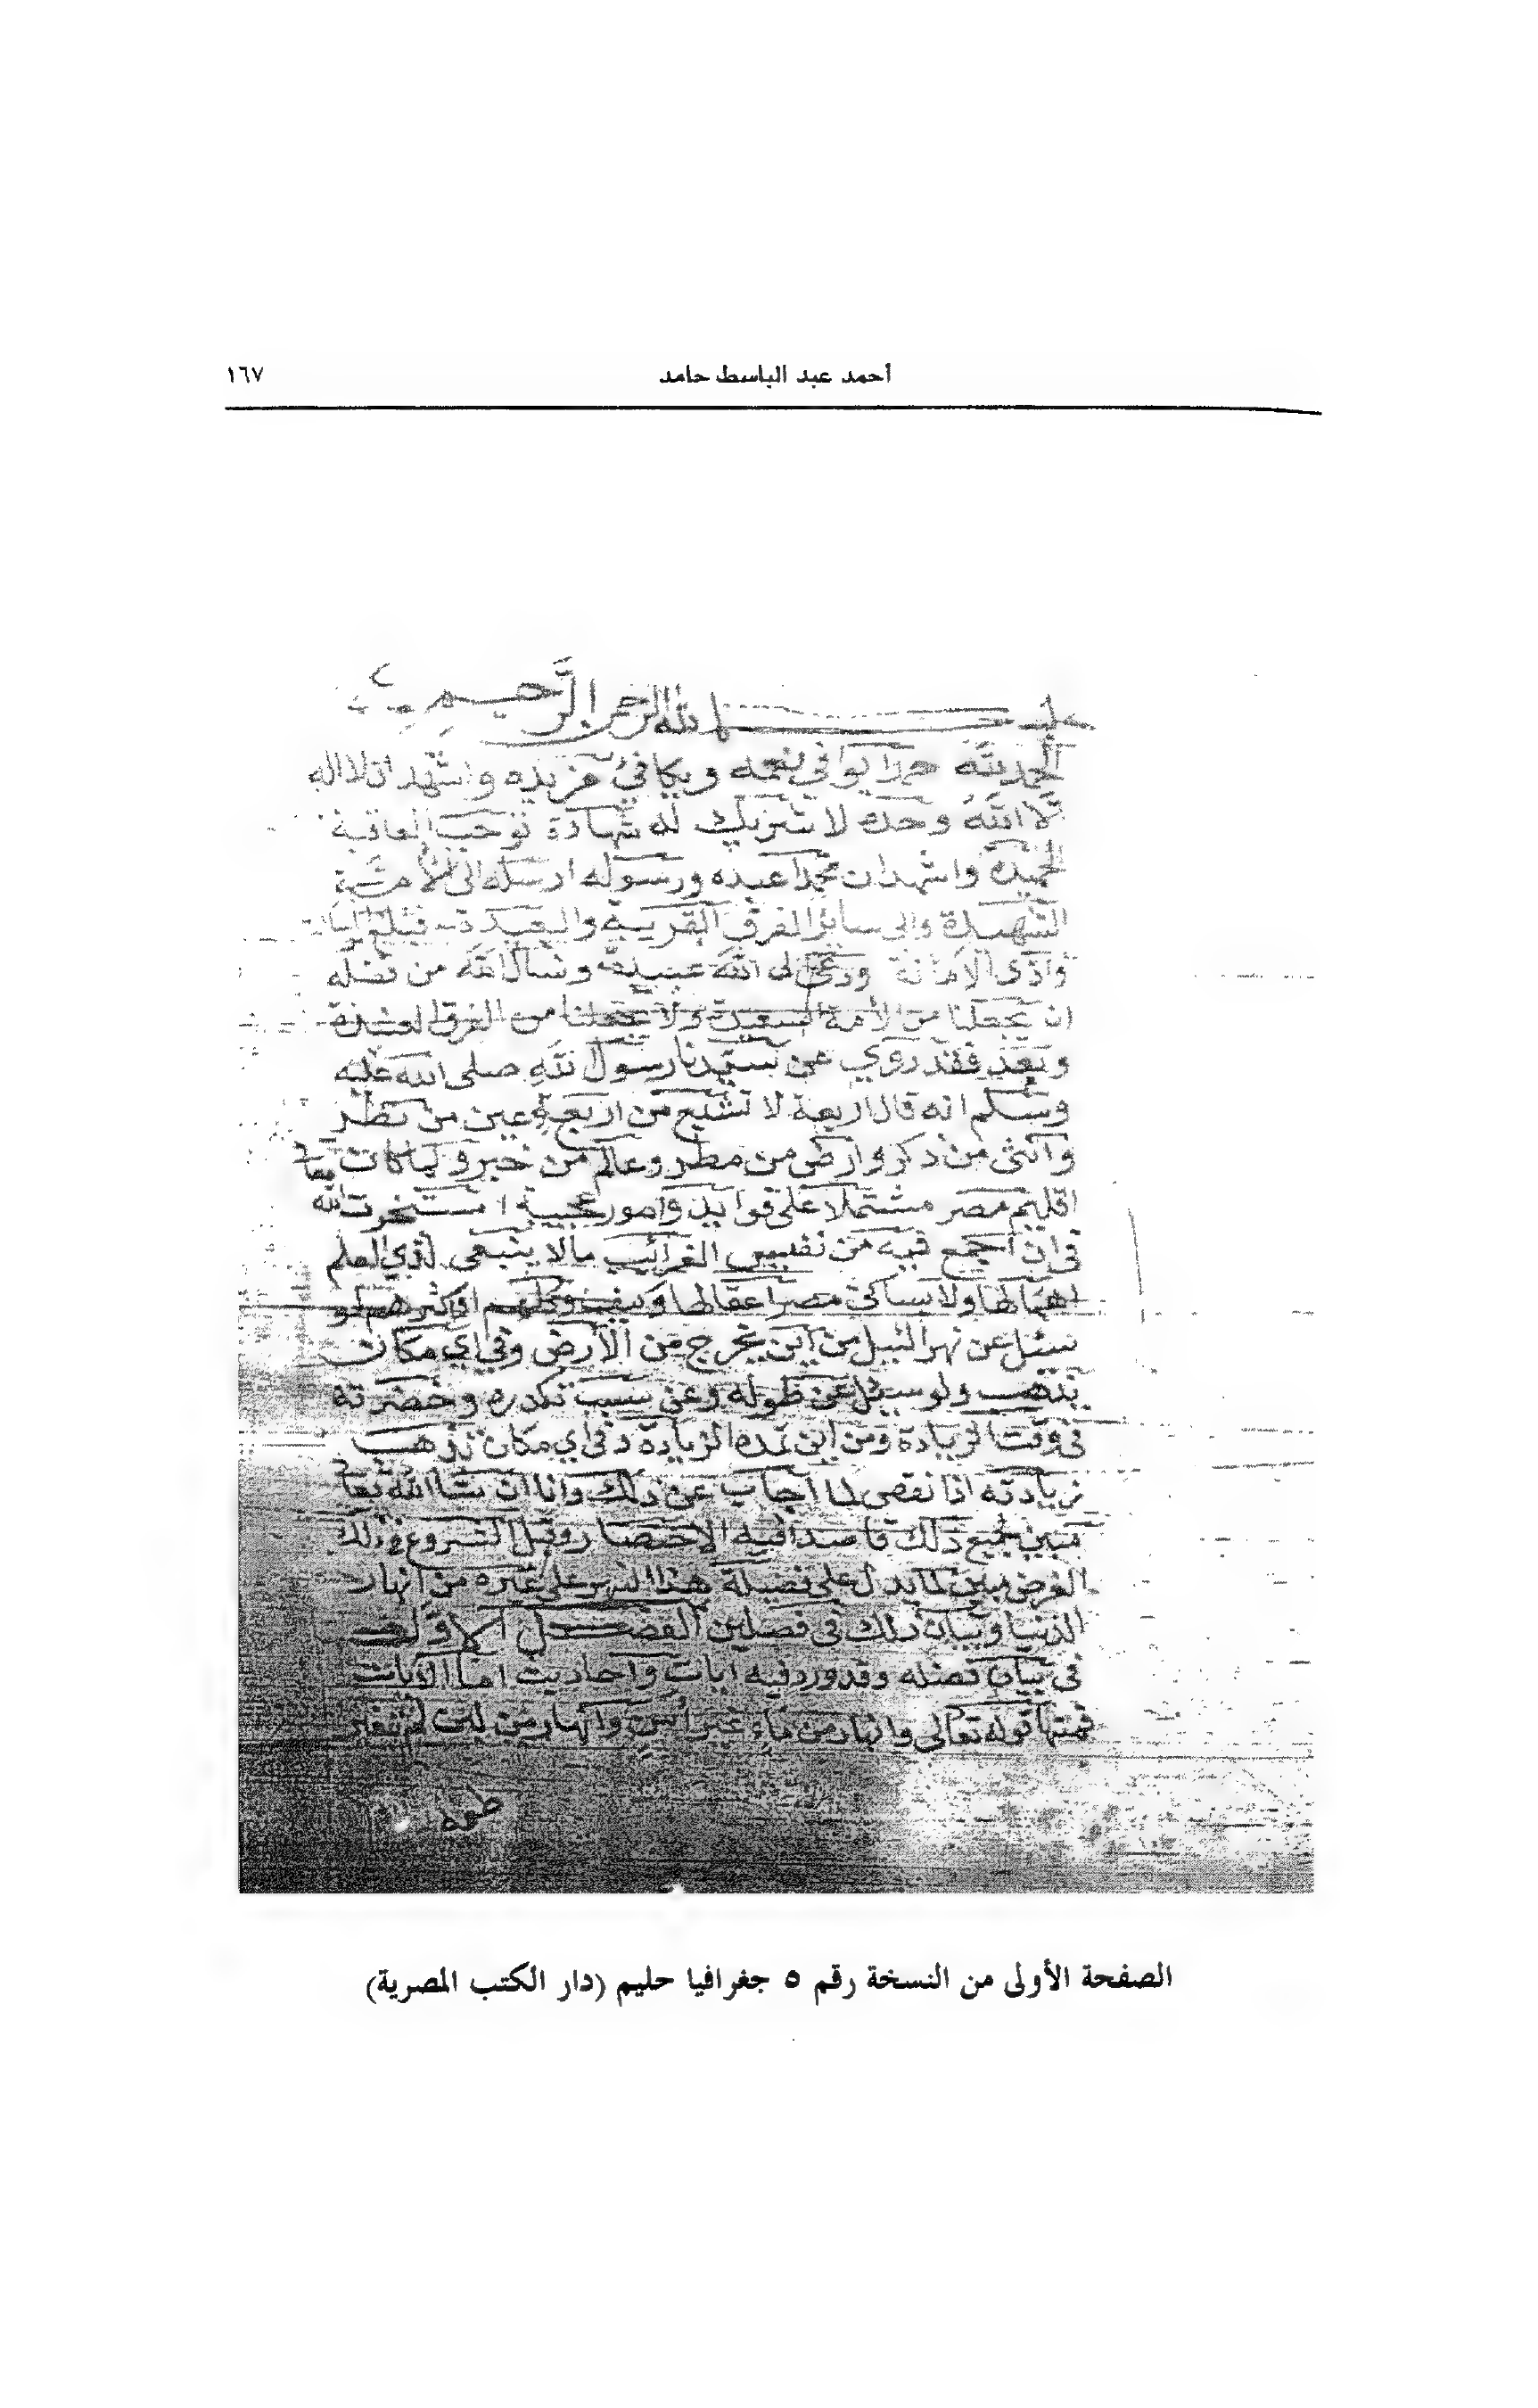 أحمد عبد الباسط حامد
١٦٧
بسم الله الرحمن الرحيم
الحمد لله حمدا يوافي نعمه ويكافئ مزيده واشهد ان لا اله
الا الله وحده لا شريك له شهادة توجب العاقبة
الحميدة واشهد ان محمدا عبده ورسوله ارسله الى الامة
الشهيدة والى ساير الفرق القريبة والبعيدة
وادى الامانة ودعى الى الله عبيده ونسال الله من فضله
ان يجعلنا من الامة السعيدة ولا يجعلنا من الفرق
وبعد فقد روي عن سيدنا رسول الله صلى الله عليه
وسلم انه قال اربعة لا تشبع من اربعة عين من نظر
وانثى من ذكر وارض من مطر وعالم من خبر ولما كانت
اقليم مصر مشتملا على فوايد وامور عجيبة استخرت الله
في ان اجمع فيه من نفيس الغرائب مالا ينبغي لذي العلم
اهمالها ولا لساكن مصر اغفالها وكيف وكلهم او اكثرهم لو
سئل عن نهر النيل من اين يخرج من الارض وفي اي مكان
يذهب ولو سئل عن طوله وعن سبب تكدره وخضرته
في وقت الزيادة ومن اين تمده الزيادة وفي اي مكان تذهب
زيادته اذا نقص لما اجاب عن ذلك وانا ان شا الله تعالى
مبين لجميع ذلك قاصدا فيه الاختصار وقبل الشروع في ذلك
الغرض مبين لما يدل على فضيلة هذا النهر على غيره من انهار
الدنيا وبيان ذلك في فصلين الفصل الاول
في بيان فضله وقد ورد فيه ايات واحاديث اما الايات
فمنها قوله تعالى وانهار من ماء غير اسن وانهار من لبن لم يتغير
طعمه
الصفحة الأولى من النسخة رقم ٥ جغرافيا حليم (دار الكتب المصرية)